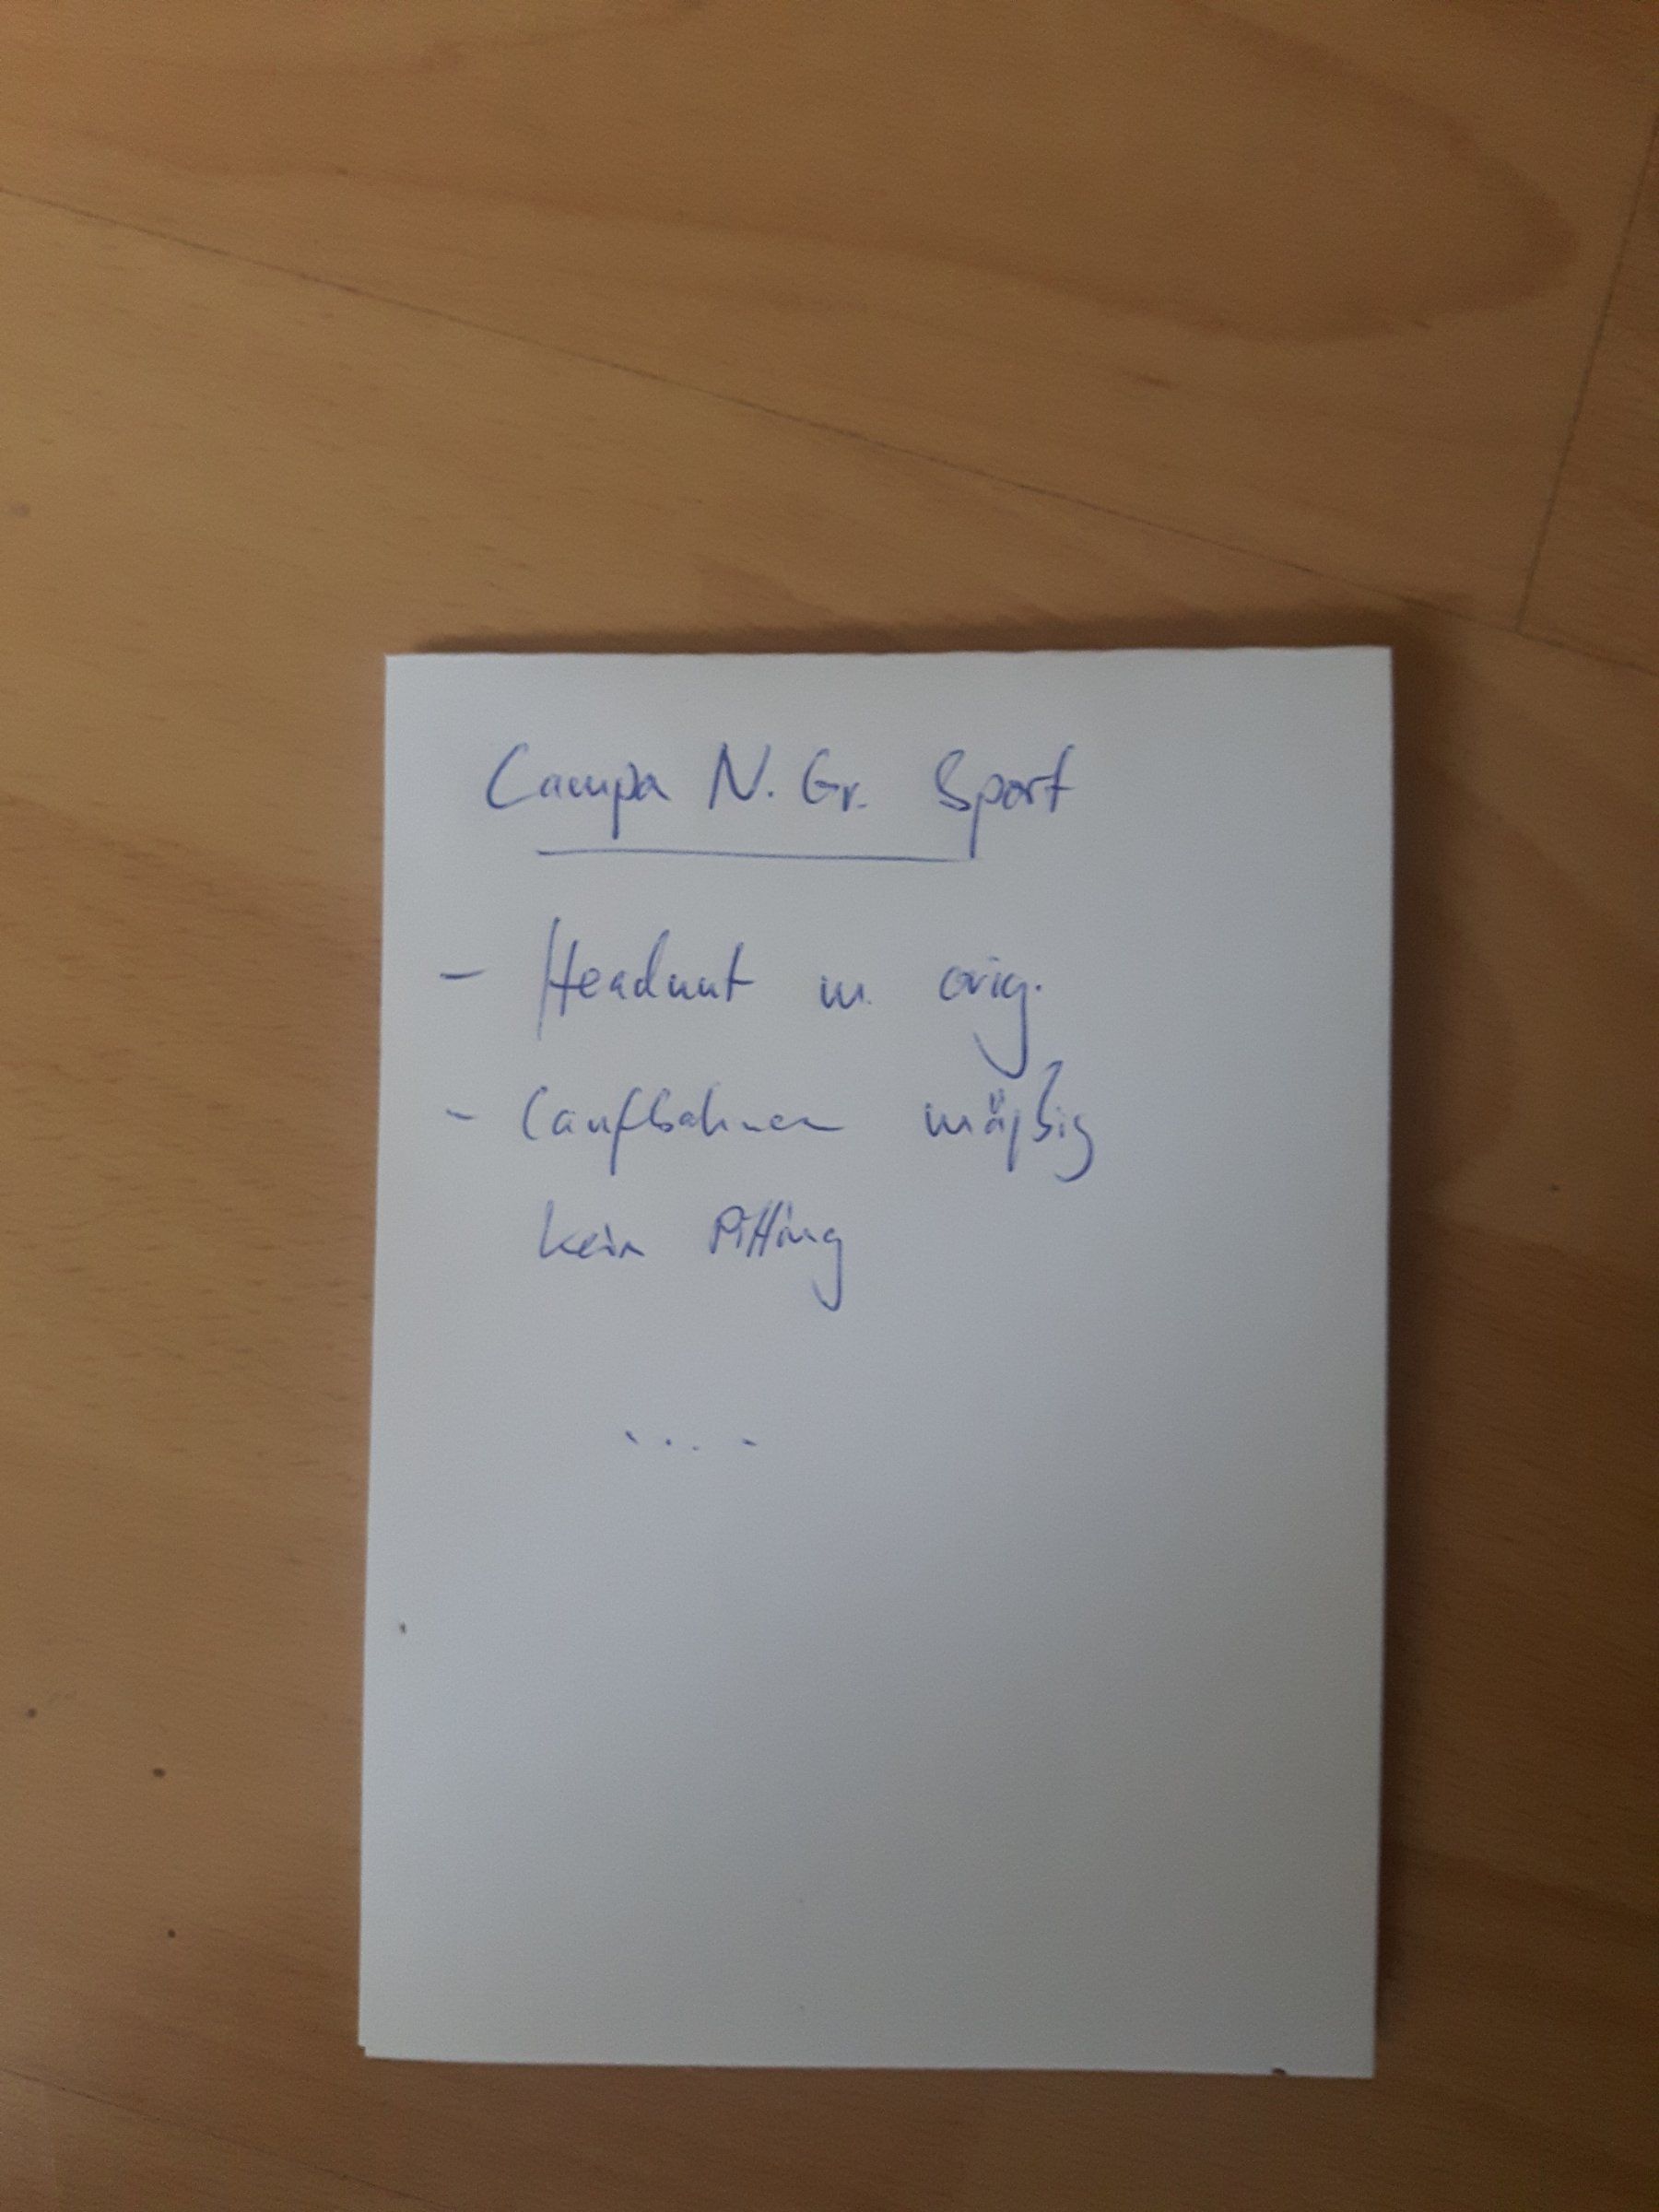 Campa N. Gr. Sport
- Headnut n. orig.
- Laufbahnen mäßig
kein Pitting
....